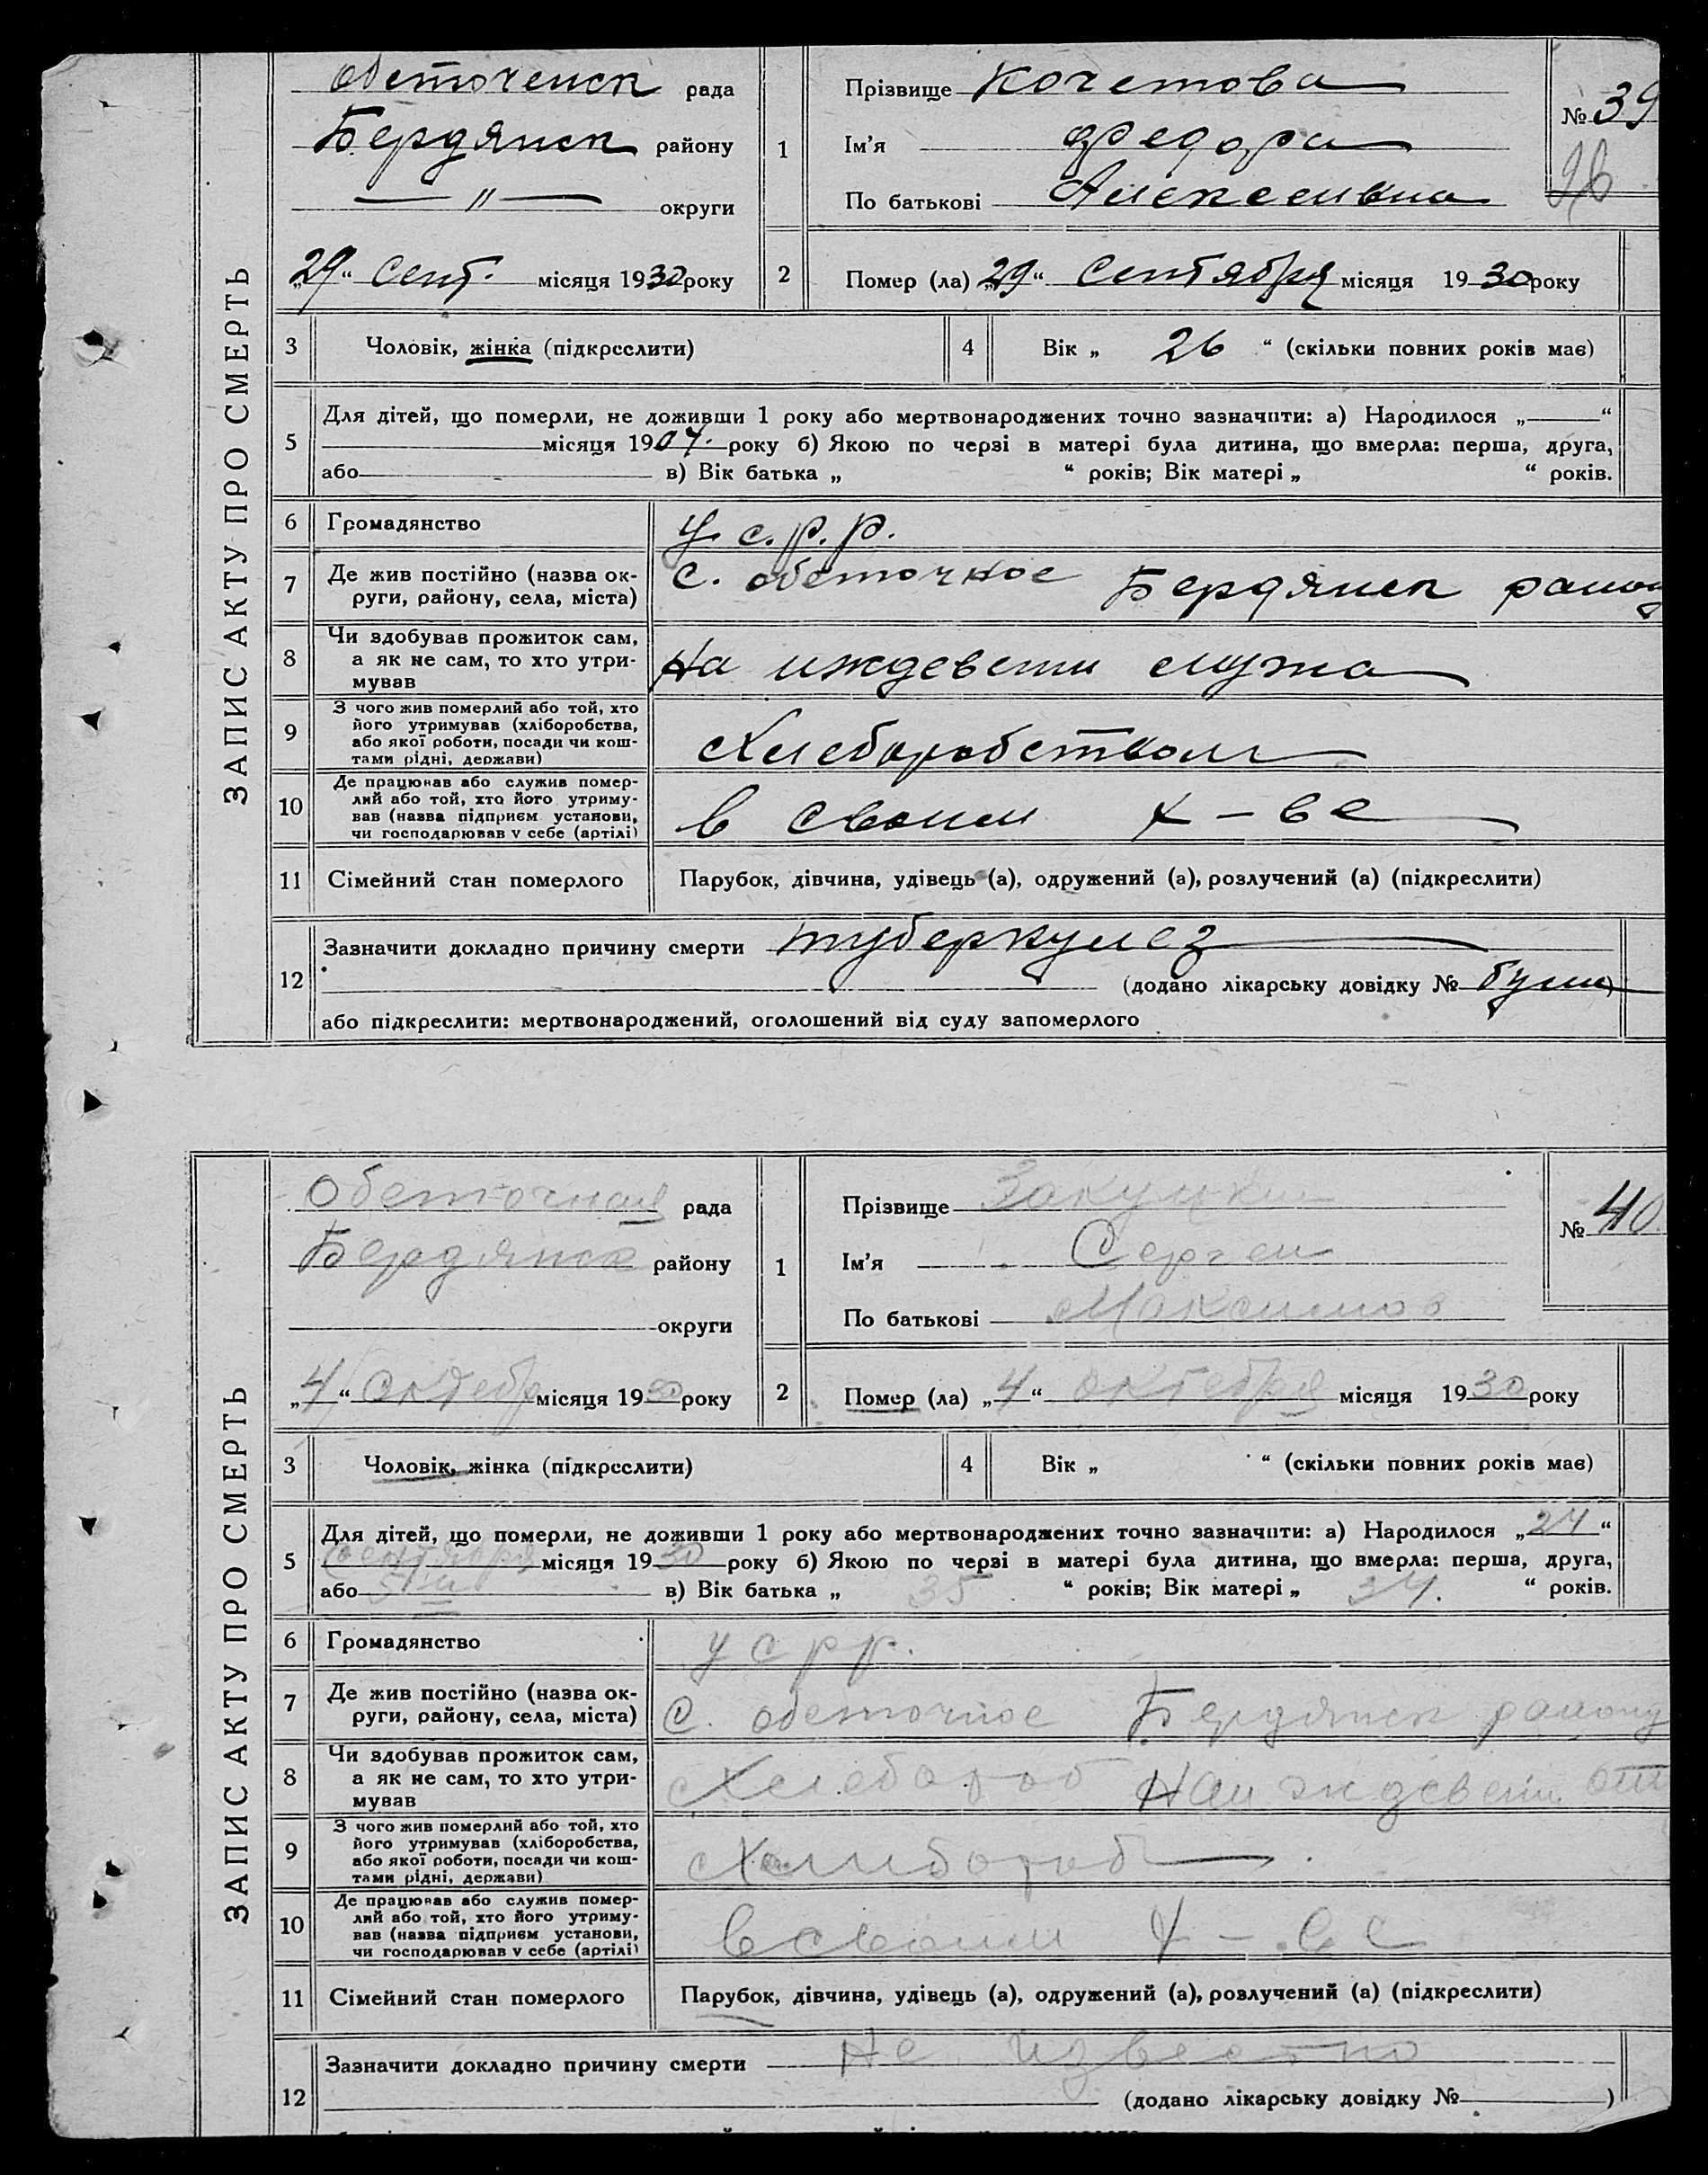 ЗАПИС АКТУ ПРО СМЕРТЬ
Обеточенск рада
Бердянск району
— " — округи
„29“ Сент. місяця 1930 року
1
Прізвище Кочетова
Ім'я Федора
По батькові Алексеивна
№ 39
26
2 Помер (ла) „29“ Сентября місяця 1930 року
3 Чоловік, жінка (підкреслити)
4 Вік „ 26 “ (скільки повних років має)
5 Для дітей, що померли, не доживши 1 року або мертвонароджених точно зазначити: а) Народилося „ “
місяця 1904. року б) Якою по черзі в матері була дитина, що вмерла: перша, друга,
або в) Вік батька „ “ років; Вік матері „ “ років.
6 Громадянство У.с.р.р.
7 Де жив постійно (назва ок-
руги, району, села, міста) с. обеточное Бердянск району
8 Чи здобував прожиток сам,
а як не сам, то хто утри-
мував На иждевени мужа
9 З чого жив померлий або той, хто
його утримував (хліборобства,
або якої роботи, посади чи кош-
тами рідні, держави) Хлеборобством
10 Де працював або служив помер-
лий або той, хто його утриму-
вав (назва підприєм. установи,
чи господарював у себе (артілі) в своим х-ве
11 Сімейний стан померлого Парубок, дівчина, удівець (а), одружений (а), розлучений (а) (підкреслити)
12 Зазначити докладно причину смерти туберкулез
(додано лікарську довідку № )
або підкреслити: мертвонароджений, оголошений від суду запомерлого
ЗАПИС АКТУ ПРО СМЕРТЬ
Обеточная рада
Бердянск району
округи
„4“ Октебр місяця 1930 року
1
Прізвище Закуцки
Ім'я Сергеи
По батькові Максимов
№ 40
2 Помер (ла) „4“ октебря місяця 1930 року
3 Чоловік, жінка (підкреслити)
4 Вік „ “ (скільки повних років має)
5 Для дітей, що померли, не доживши 1 року або мертвонароджених точно зазначити: а) Народилося „24“
Сентября місяця 1930 року б) Якою по черзі в матері була дитина, що вмерла: перша, друга,
або 5ый в) Вік батька „ 35 “ років; Вік матері „ 34. “ років.
6 Громадянство У с р р.
7 Де жив постійно (назва ок-
руги, району, села, міста) С. обеточное Бердянск району
8 Чи здобував прожиток сам,
а як не сам, то хто утри-
мував Хлебороб На иждевени
9 З чого жив померлий або той, хто
його утримував (хліборобства,
або якої роботи, посади чи кош-
тами рідні, держави) Хлибороб
10 Де працював або служив помер-
лий або той, хто його утриму-
вав (назва підприєм. установи,
чи господарював у себе (артілі) в своим х-ве
11 Сімейний стан померлого Парубок, дівчина, удівець (а), одружений (а), розлучений (а) (підкреслити)
12 Зазначити докладно причину смерти Не известно
(додано лікарську довідку № )